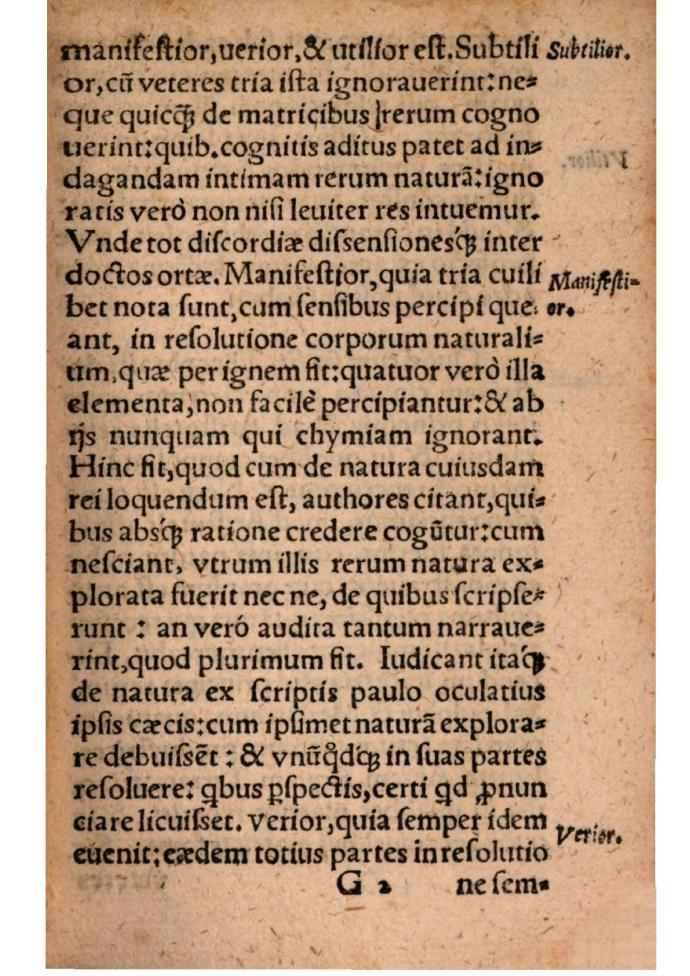 manifeſtior,uerior,& utilior eſt.Subtili Subtilior.
or,cū veteres tria iſta ignorauerint:ne⸗
que quicꝗ̃ de matricibus rerum cogno
uerint:quib.cognitis aditus patet ad in⸗
dagandam intimam rerum naturã:igno
ratis verò non niſi leuiter res intuemur.
Vnde tot diſcordiæ diſſenſionesq́ꝫ inter
doctos ortæ.Manifeſtior,quia tria cuili Manifeſti⸗
bet nota ſunt,cum ſenſibus percipi que or.
ant, in reſolutione corporum naturali⸗
um,quæ per ignem fit:quatuor verò illa
elementa,non facilè percipiantur:& ab
ijs nunquam qui chymiam ignorant.
Hinc fit,quod cum de natura cuiusdam
rei loquendum eſt, authores citant,qui⸗
bus absq́ꝫ ratione credere cogūtur:cum
neſciant, vtrum illis rerum natura ex⸗
plorata fuerit nec ne, de quibus ſcripſe⸗
runt : an veró audita tantum narraue⸗
rint,quod plurimum fit. Iudicant itaq́ꝫ
de natura ex ſcriptis paulo oculatius
ipſis cæcis:cum ipſimet naturã explora⸗
re debuiſſẽt : & vnūq̃dq́ꝫ in ſuas partes
reſoluere: qbus ꝑſpectis,certi qd ꝓnun
ciare licuiſſet. Verior,quia ſemper idem Verior.
euenit:eædem totius partes in reſolutio
G 2 ne ſem⸗